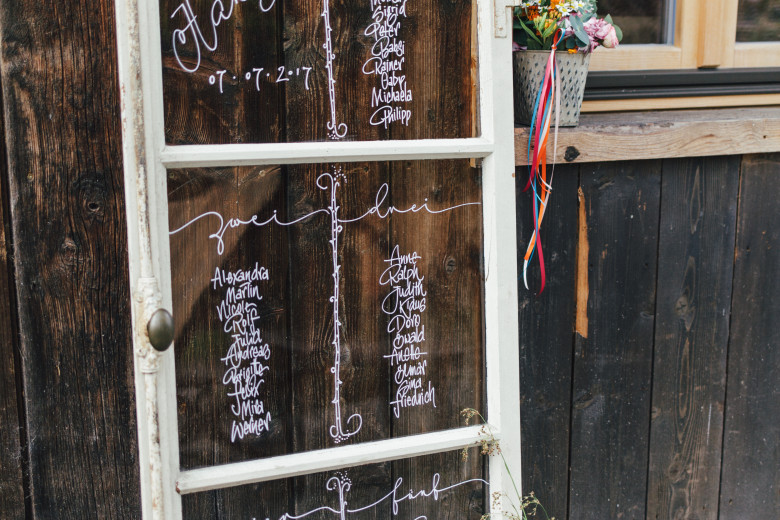 07.07.2017
Peter
Babsi
Rainer
Gaby
Michaela
Philipp
zwei
drei
Alexandra
Martin
Nicole
Rolf
Julia
Andreas
Brigitte
Felix
Mira
Werner
Anne
Ralph
Judith
Klaus
Doris
Ewald
Anette
Gunar
Gina
Friedrich
fünf